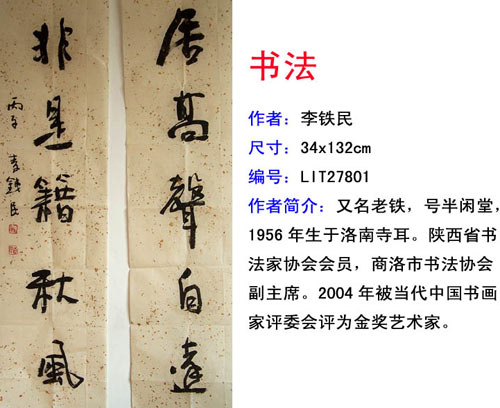 居高聲自遠
非是籍秋風
丙子 李鐵民
书法
作者：李铁民
尺寸：34x132cm
编号：LIT27801
作者简介：又名老铁，号半闲堂，
1956年生于洛南寺耳。陕西省书
法家协会会员，商洛市书法协会
副主席。2004年被当代中国书画
家评委会评为金奖艺术家。